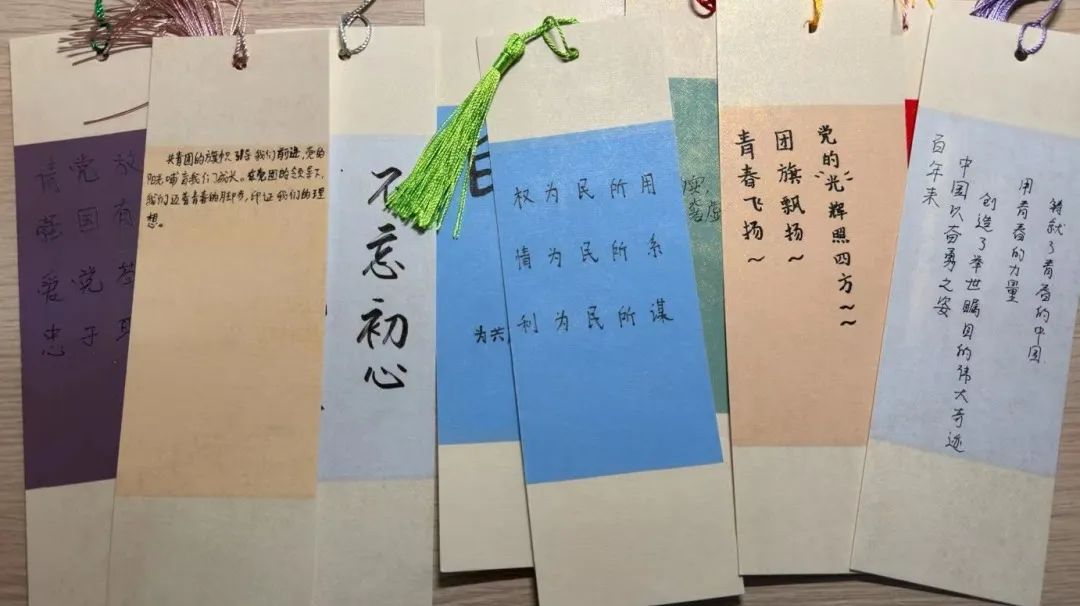 请党放
强国有
爱党
忠于
共青团的旗帜引导我们前进,党的
阳光哺育我们成长。在党团的领导下,
我们迈着青春的脚步,印证我们的理
想。
不忘初心
为共
权为民所用
情为民所系
利为民所谋
党的光辉照四方~~
团旗飘扬~
青春飞扬~
百年来
中国以奋勇之姿
创造了举世瞩目的伟大奇迹
用青春的力量
铸就了青春的中国